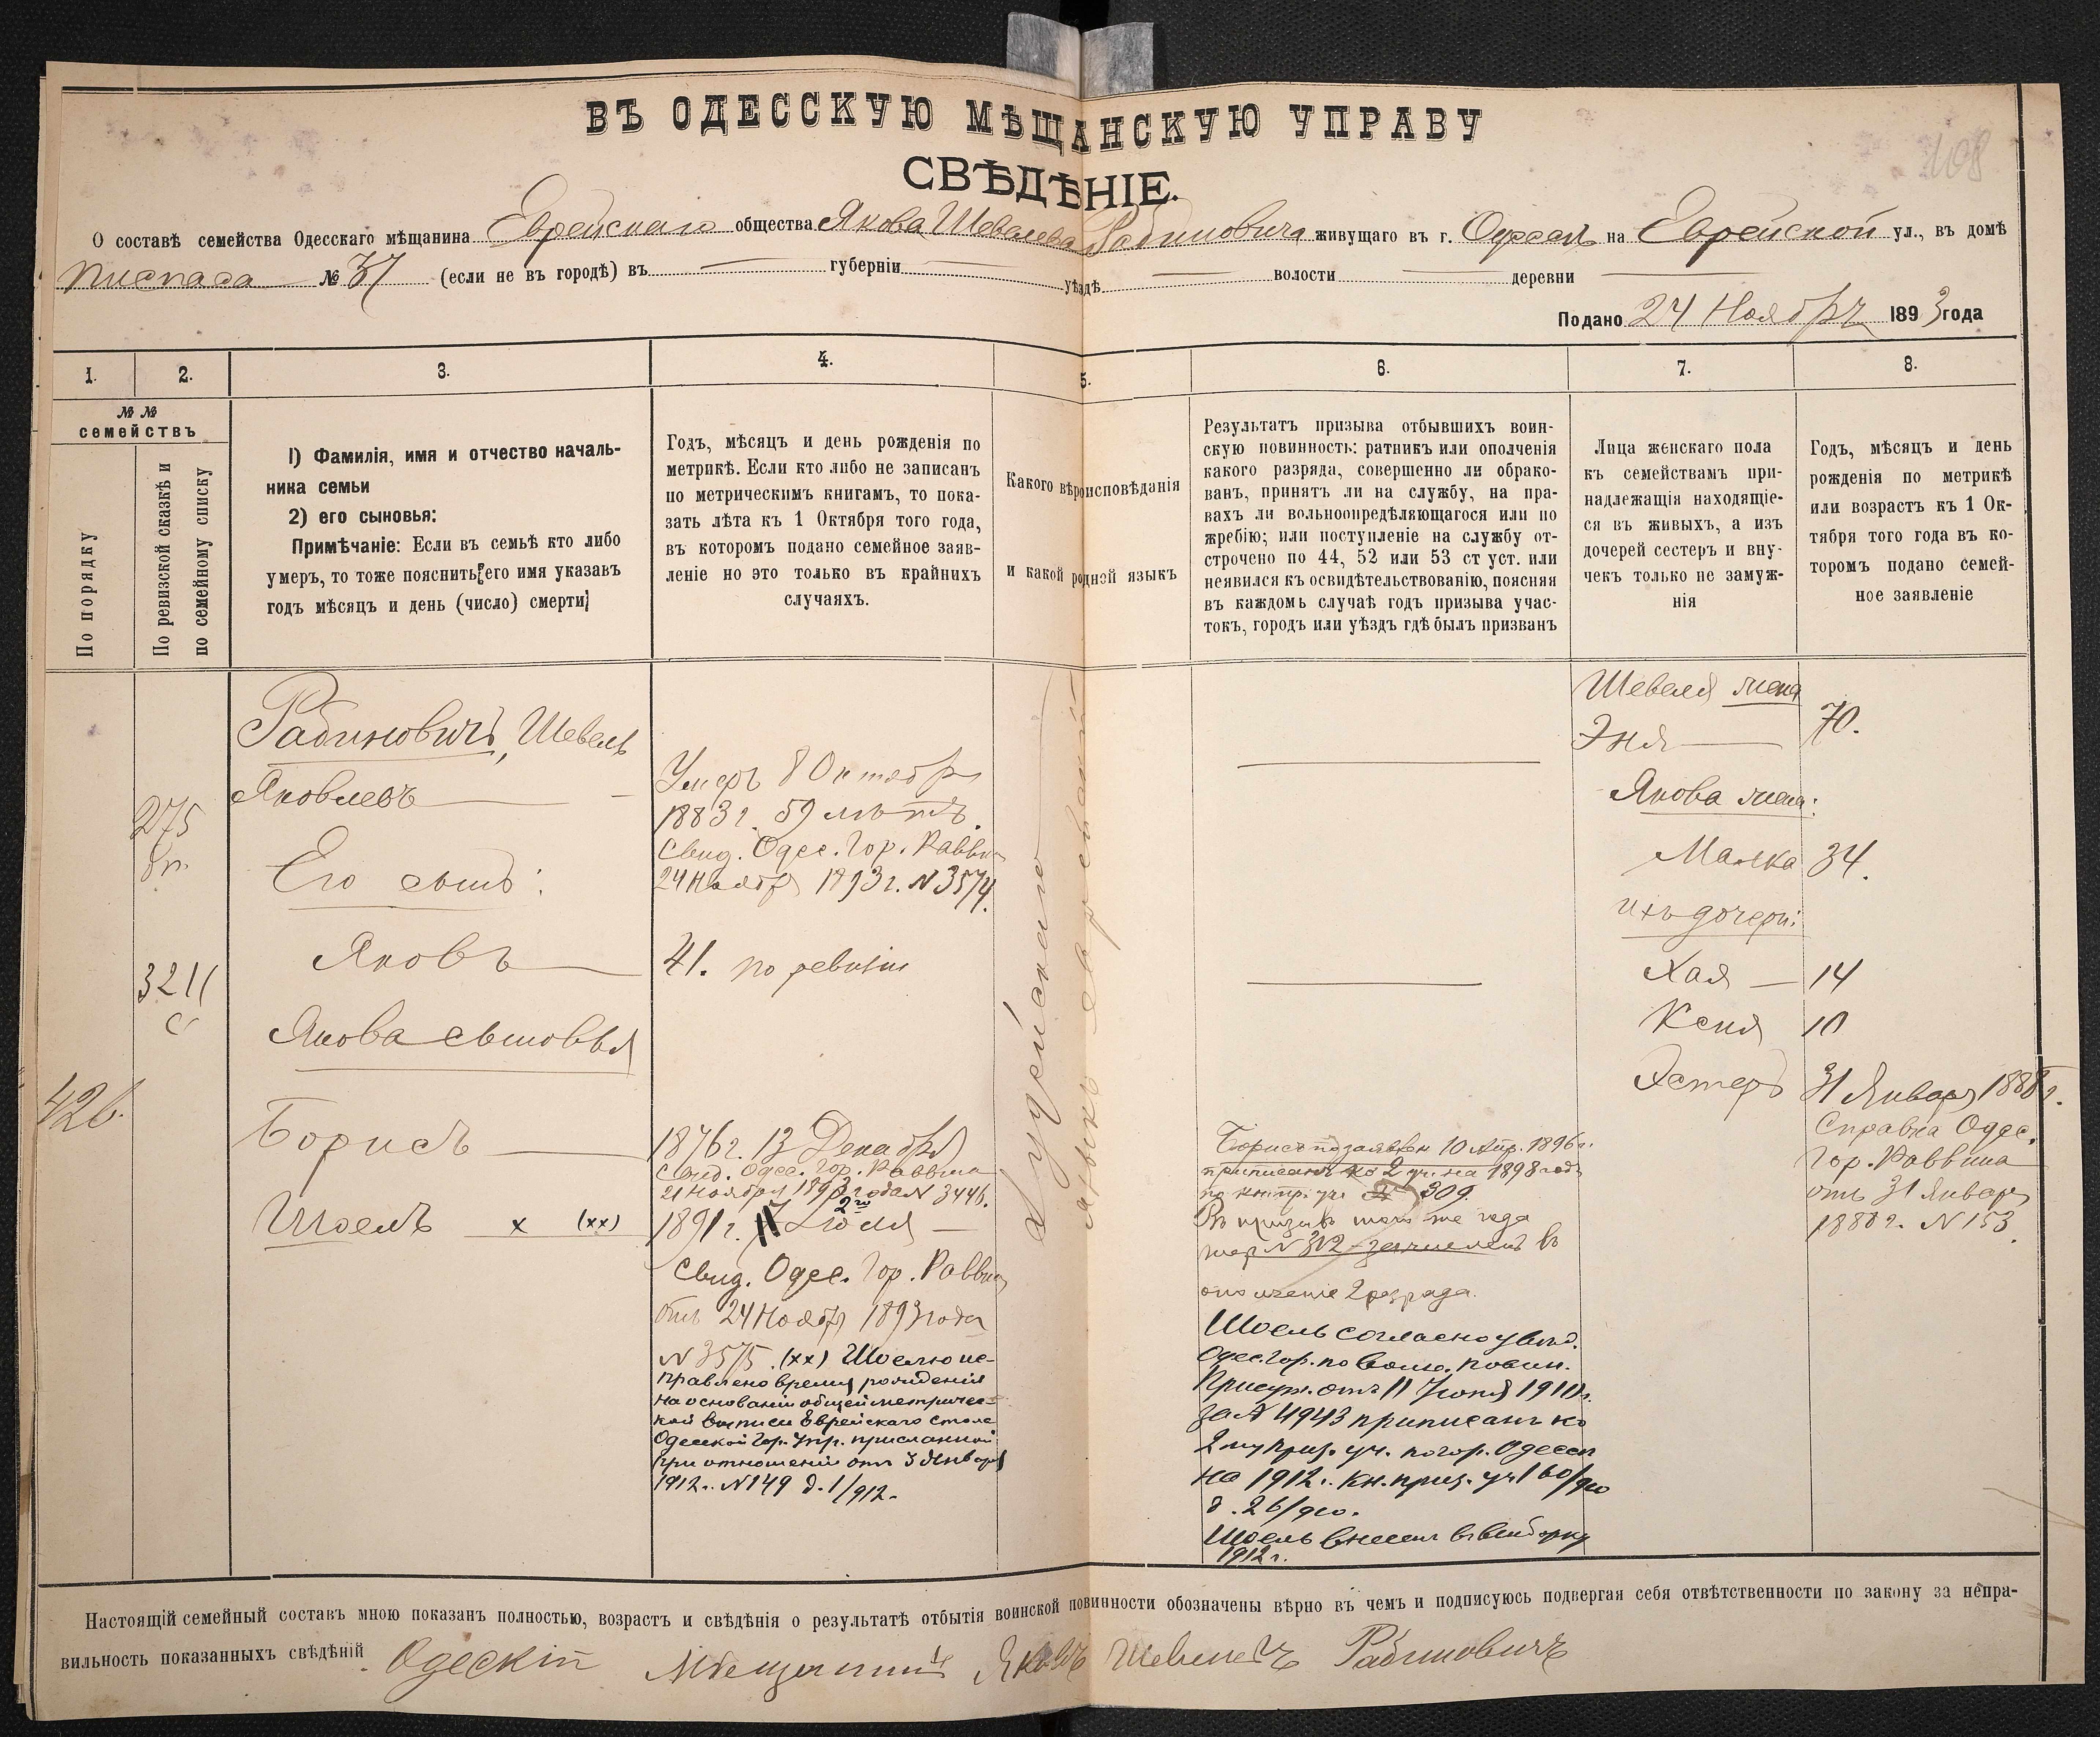 108
ВЪ ОДЕССКУЮ МѢЩАНСКУЮ УПРАВУ
СВѢДѢНІЕ.
О составѣ семейства Одесскаго мѣщанина Еврейскаго общества Якова Шевелева Рабиновича живущаго въ г. Одессѣ на Еврейской ул., въ домѣ
№ 37 (если не въ городѣ) въ губерніи уѣздѣ волости деревни
Подано 24 Ноября 1893 года
1.
2.
3.
4.
5.
6.
7.
8.
№ №
семействъ
По порядку
По ревизской сказкѣ и
по семейному списку
1) Фамилія, имя и отчество началь-
ника семьи
2) его сыновья:
Примѣчаніе: Если въ семьѣ кто либо
умеръ, то тоже пояснить его имя указавъ
годъ мѣсяцъ и день (число) смерти
Годъ, мѣсяцъ и день рожденія по
метрикѣ. Если кто либо не записанъ
по метрическимъ книгамъ, то пока-
зать лѣта къ 1 Октября того года,
въ которомъ подано семейное заяв-
леніе но это только въ крайнихъ
случаяхъ.
Какого вѣроисповѣданія
и какой родной языкъ
Результатъ призыва отбывшихъ воин-
скую повинность: ратникъ или ополченія
какого разряда, совершенно ли обрако-
ванъ, принятъ ли на службу, на пра-
вахъ ли вольноопредѣляющагося или по
жребію; или поступленіе на службу от-
строчено по 44, 52 или 53 ст уст. или
неявился къ освидѣтельствованію, поясняя
въ каждомъ случаѣ годъ призыва учас-
токъ, городъ или уѣздъ гдѣ былъ призванъ
Лица женскаго пола
къ семействамъ при-
надлежащія находящіе-
ся въ живыхъ, а изъ
дочерей сестеръ и вну-
чекъ только не замуж-
нія
Годъ, мѣсяцъ и день
рожденія по метрикѣ
или возрастъ къ 1 Ок-
тября того года въ ко-
торомъ подано семей-
ное заявленіе
426.
275
3211
с
Рабиновичъ, Шевель
Яковлевъ
Его сынъ:
Яковъ
Якова сыновья
Борисъ
Шоель x (xx)
Умеръ 8 Октября
1883 г. 59 лѣтъ.
Свид. Одес. Гор. Раввина
24 Ноября 1893 г. N 3574.
41. по ревизіи
1876 г. 13 Декабря
Свид. Одес. Гор. Раввина
21 Ноября 1893 года N 3446.
2го
1891 г. Іюля
Свид. Одес. Гор. Раввина
отъ 24 Ноября 1893 года
N 3575. (xx) Шоелю ис-
правлено время рожденія
на основаніи общей метричес-
кой выписи Еврейскаго стола
Одесской Гор. Упр. присланной
при отношеніи отъ 3 Января
1912 г. N 149 д. 1/912.
Іудейскаго
языкъ еврейскій
Борисъ по заявлен 10 Апр. 1896 г.
приписанъ ко 2 уч. на 1898 годъ
309.
Въ призывъ того же года
жер N 312 зачисленъ въ
ополченіе 2 разряда.
Шоель согласно увѣд.
Одес. Гор. по воин. повин.
Присут. отъ 11 Іюня 1910 г.
за N 4943 приписанъ ко
2 му приз. уч. по гор. Одессѣ
на 1912 г. кн. приз. уч 160/910
д. 26/910.
Шоель внесенъ въ выборку
1912 г.
Шевеля жена
Эня 70.
Якова жена:
Малка 34.
ихъ дочери:
Хая 14
Ксня 10
Эстеръ 31 Января 1888 г.
Справка Одес.
Гор. Раввина
отъ 31 Января
1888 г. N 153.
Настоящій семейный составъ мною показанъ полностью, возрастъ и свѣдѣнія о результатѣ отбытія воинской повинности обозначены вѣрно въ чемъ и подписуюсь подвергая себя отвѣтственности по закону за непра-
вильность показанныхъ свѣдѣній. Одескій Мѣщанинъ Яковъ Шевелевъ Рабиновичъ